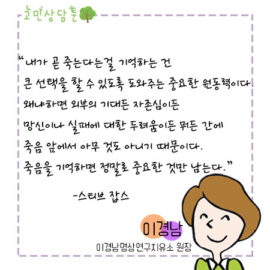 호민상담톡
"내가 곧 죽는다는걸 기억하는 건
큰 선택을 할 수 있도록 도와주는 중요한 원동력이다.
왜냐하면 외부의 기대든 자존심이든
망신이나 실패에 대한 두려움이든 뭐든 간에
죽음 앞에서 아무 것도 아니기 때문이다.
죽음을 기억하면 정말로 중요한 것만 남는다."
-스티브 잡스
이경남
이경남명상연구치유소 원장